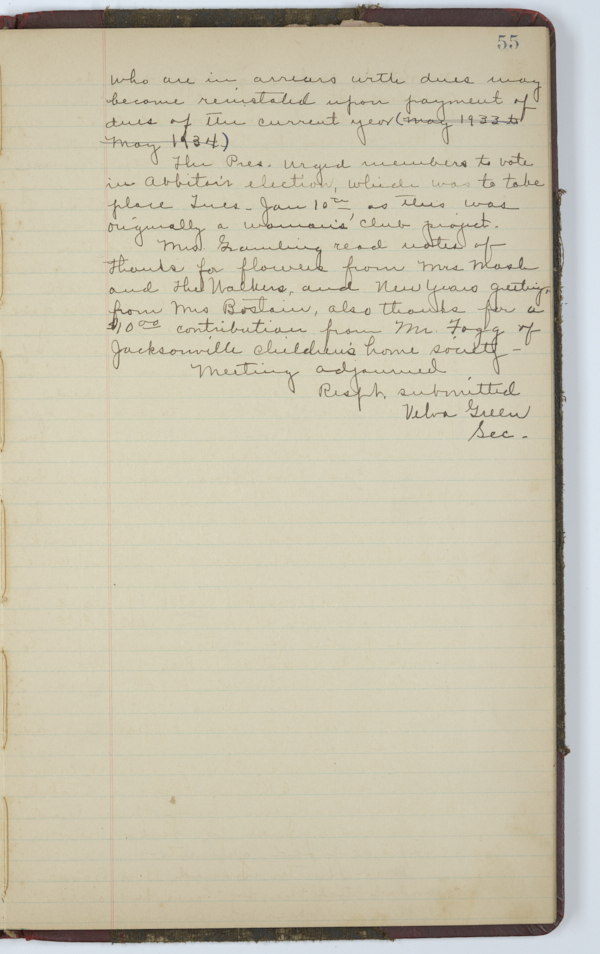 55
who are in arrears with dues may
become reinstated upon payment of
dues of the current year (May 1933 to
May 1934)
The Pres. urged members to vote
in election, which was to take
place Tues - Jan 10th as this was
originally a woman's club project.
Mrs Grambling read notes of
thanks for flowers from Mrs Mash
and the Walkers, and New Years greetings
from Mrs Bostain, also thanks for a
$10.00 contribution from Mr. Fogg of
Jacksonville children's home society -
Meeting adjourned
Respt. submitted
Velva Green
Sec.